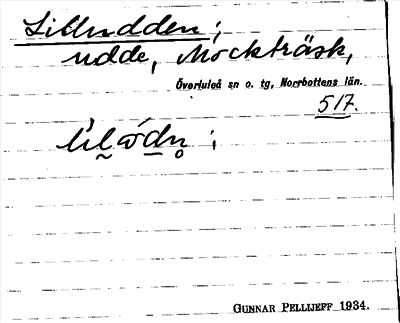 Lilludden;
udde, Mockträsk,
Överluleå sn o. tg, Norrbottens län.
517.
GUNNAR PELLIJEFF 1934.